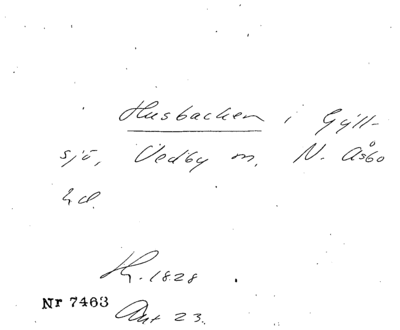 Husbacken i Gyll-
sjö, Vedby sn, N. Åsbo
hd.
Hr. 1828
Nr 7463
Ant 23.